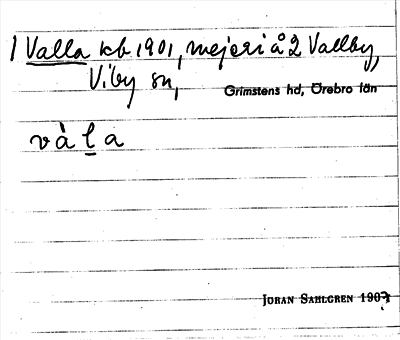 1 Valla kb. 1901, mejeri å 2 Vallby,
Viby sn, Grimstens hd, Örebro län
và l̠a
JÖRAN SAHLGREN 190?